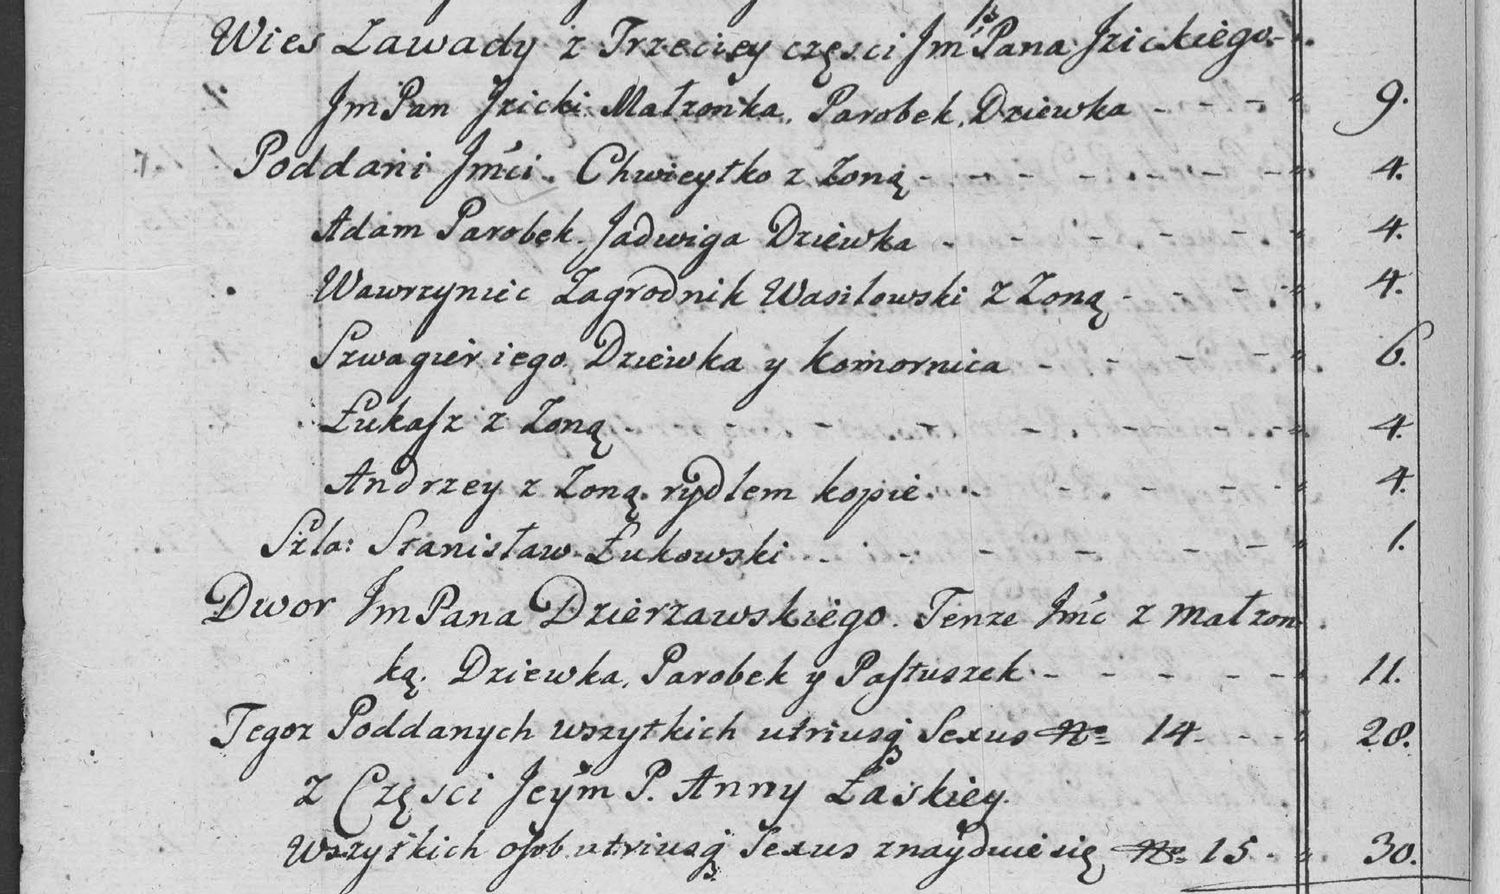 Wies Zawady z Trzeciey częsci Jm Pana Jzickiego
Jm Pan Jzicki Małzonka, Parobek, Dziewka - - - - 9.
Poddani Jmći. Chwieytko z Zoną - - - - - - - 4.
Adam Parobek. Jadwiga Dziewka - - - - - 4.
Wawrzyniec Zagrodnik Wasilowski z Zoną - - - 4.
Szwagier iego Dziewka y komornica - - - - - 6.
Łukasz z Zoną - - - - - - - - 4.
Andrzey z Zoną rydlem kopie - - - - - 4.
Szla: Stanisław Łukowski - - - - - - 1.
Dwor Jm Pana Dzierzawskiego. Tenze Jmć z małzon
ką. Dziewka, Parobek y Pastuszek - - - - - 11.
Tegoz Poddanych wszytkich utriusq Sexus No 14 - - - 28.
Z Częsci Jeym P. Anny Łaskiey.
Wszytkich osob utriusq Sexus znayduie się No 15 - - 30.